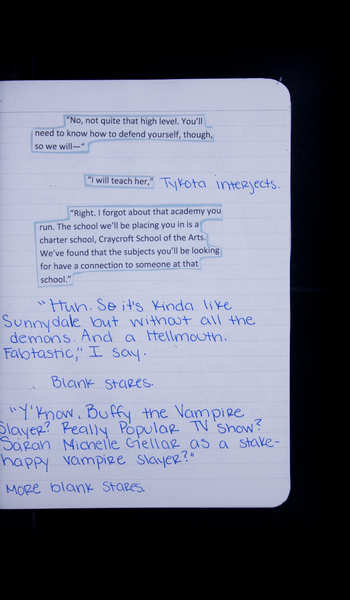 "No, not quite that high level. You'll
need to know how to defend yourself, though,
so we will—"
"I will teach her," Tykota interjects.
"Right. I forgot about that academy you
run. The school we'll be placing you in is a
charter school, Craycroft School of the Arts.
We've found that the subjects you'll be looking
for have a connection to someone at that
school."
"Huh. So it's kinda like
Sunnydale but without all the
demons. And a Hellmouth.
Fabtastic," I say.
Blank stares.
"Y'know, Buffy the Vampire
Slayer? Really Popular TV show?
Sarah Michelle Gellar as a stake-
happy vampire slayer?"
More blank stares.